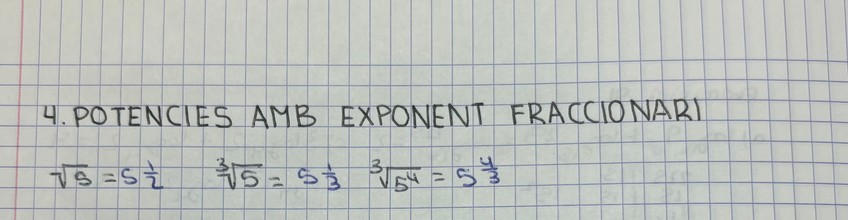 4. POTENCIES AMB EXPONENT FRACCIONARI
√5 = 5^(1/2) ∛5 = 5^(1/3) ∛5⁴ = 5^(4/3)